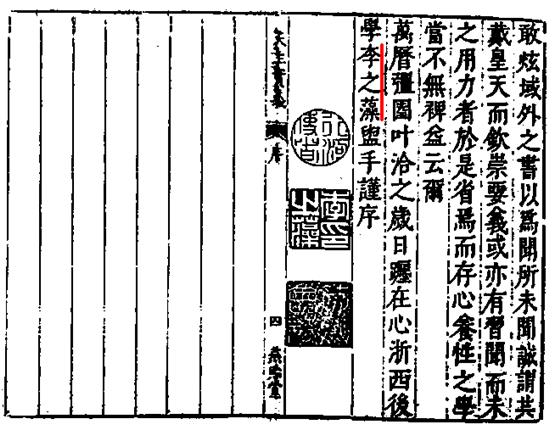 敢炫域外之書以為聞所未聞誠謂共
戴皇天而欽崇要義或亦有習聞而未
之用力者於是省焉而存心養性之學
當不無裨益云爾
萬曆彊圉叶洽之歲日躔在心浙西後
學李之藻盥手謹序
天主實義
序
四
燕貽堂